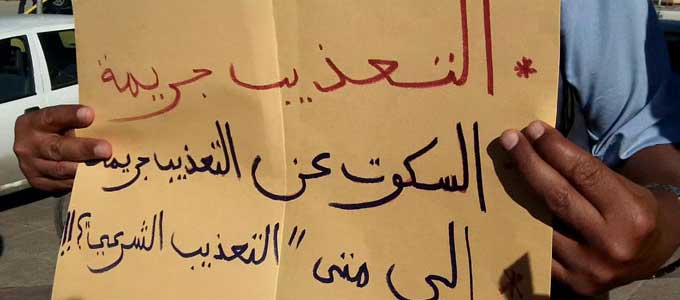 * التعذيب جريمة
السكوت عن التعذيب جريمة
* إلى متى "التعذيب الشرعي"؟!!